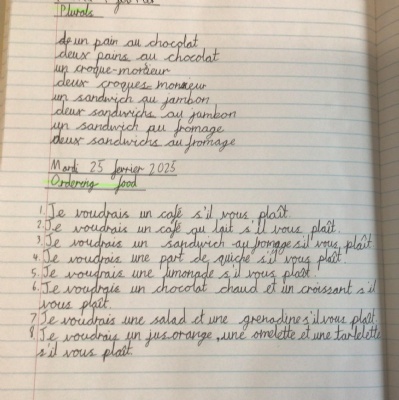 Plurals
un pain au chocolat
deux pains au chocolat
un croque-monsieur
deux croques-monsieur
un sandwich au jambon
deux sandwichs au jambon
un sandwich au fromage
deux sandwichs au fromage
Mardi 25 fevrier 2025
Ordering food
1. Je voudrais un café s'il vous plaît.
2. Je voudrais un café au lait s'il vous plaît.
3. Je voudrais un sandwich au fromage s'il vous plaît
4. Je voudrais une part de quiche s'il vous plaît
5. Je voudrais une limonade s'il vous plaît.
6. Je voudrais un chocolat chaud et un croissant s'il
vous plaît.
7. Je voudrais une salad et une grenadine s'il vous plaît
8. Je voudrais un jus orange, une omelette et une tartelette
s'il vous plaît